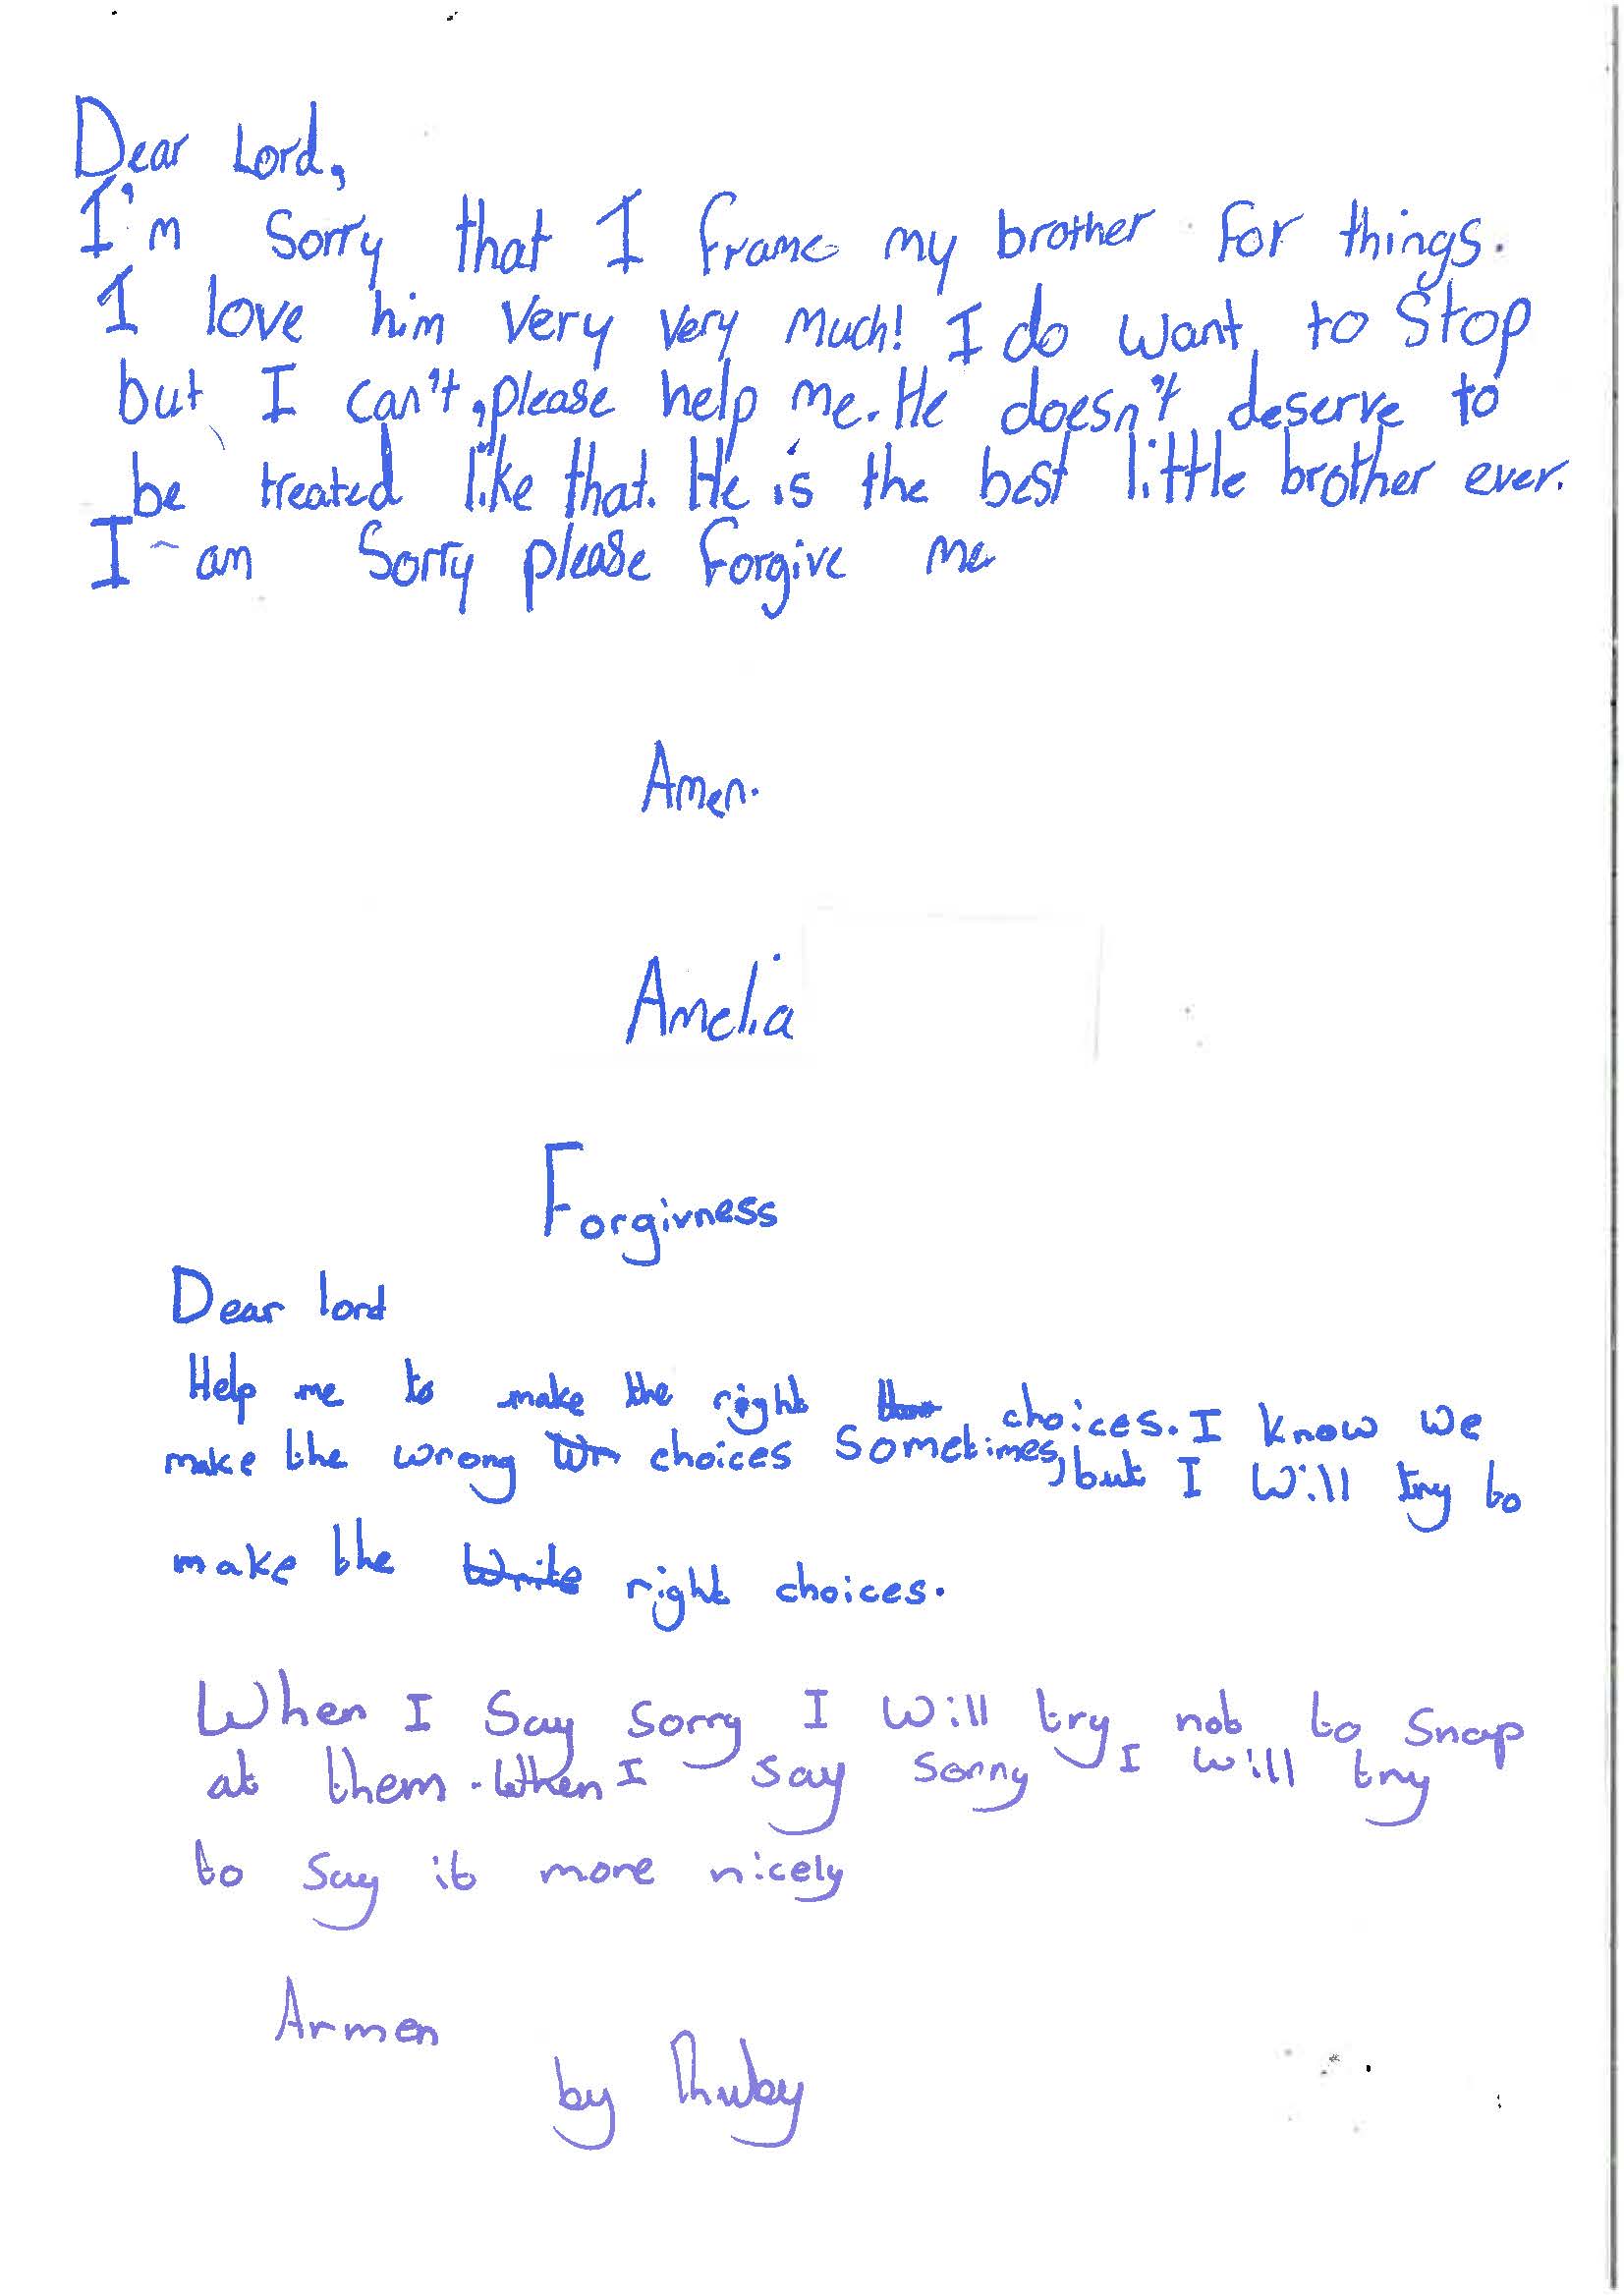 Dear Lord,
I'm sorry that I frame my brother for things.
I love him very very much! I do want to stop
but I can't, please help me. He doesn't deserve to
be treated like that. He is the best little brother ever.
I am sorry please forgive me
Amen.
Amelia
Forgivness
Dear lord
Help me to make the right choices. I know we
make the wrong Wr choices sometimes, but I will try to
make the Write right choices.
When I say sorry I will try not to snap
at them. When I say sorry I will try
to say it more nicely
Armen
by Ruby